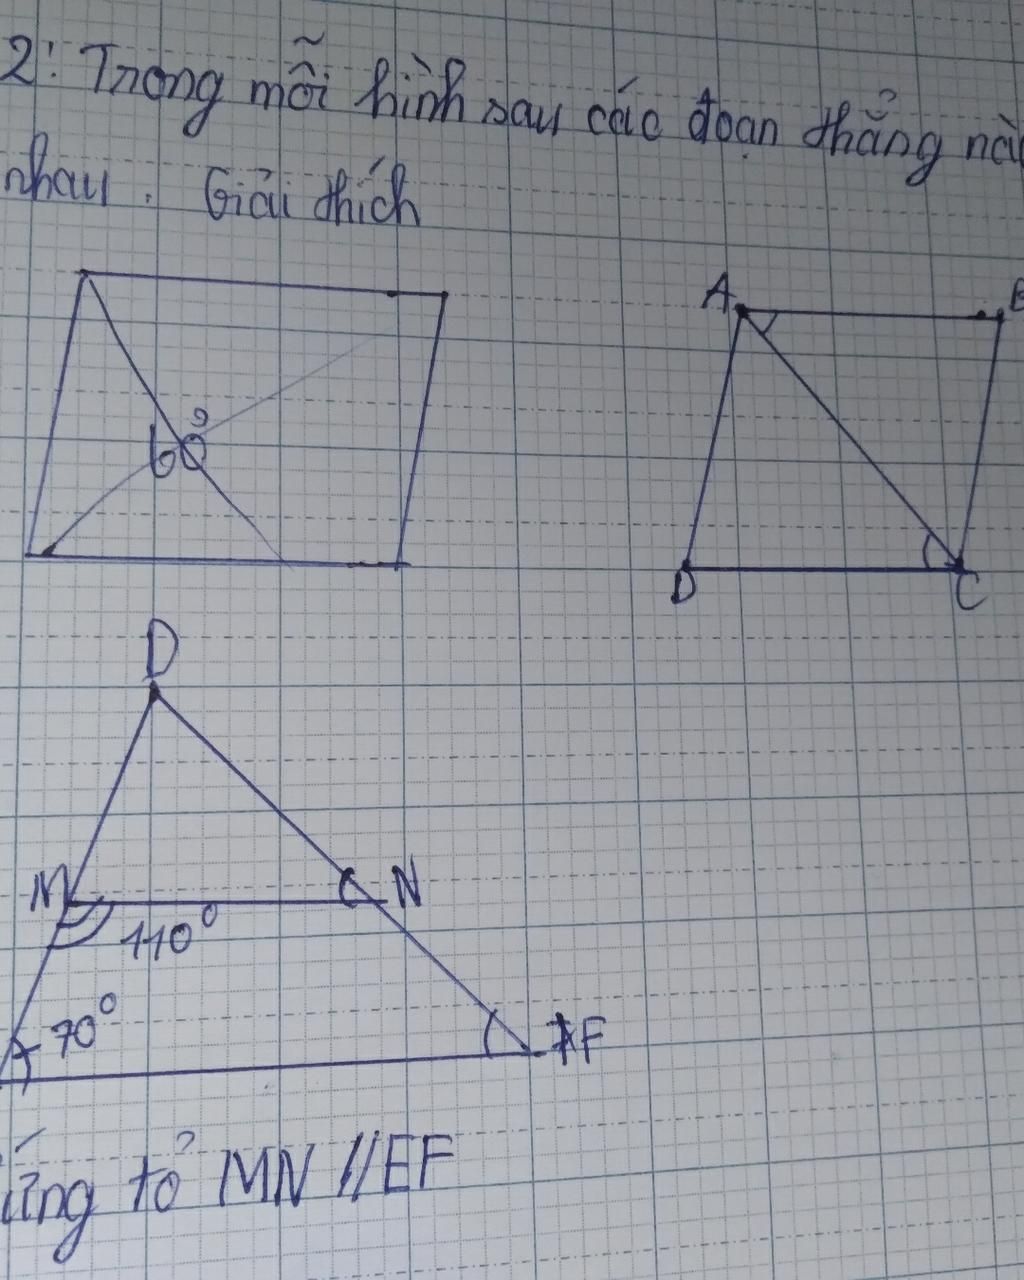 2: Trong mỗi hình sau các đoạn thẳng
nhau. Giải thích
A
60°
D
C
D
M
N
110°
70°
F
tỏ MN // EF